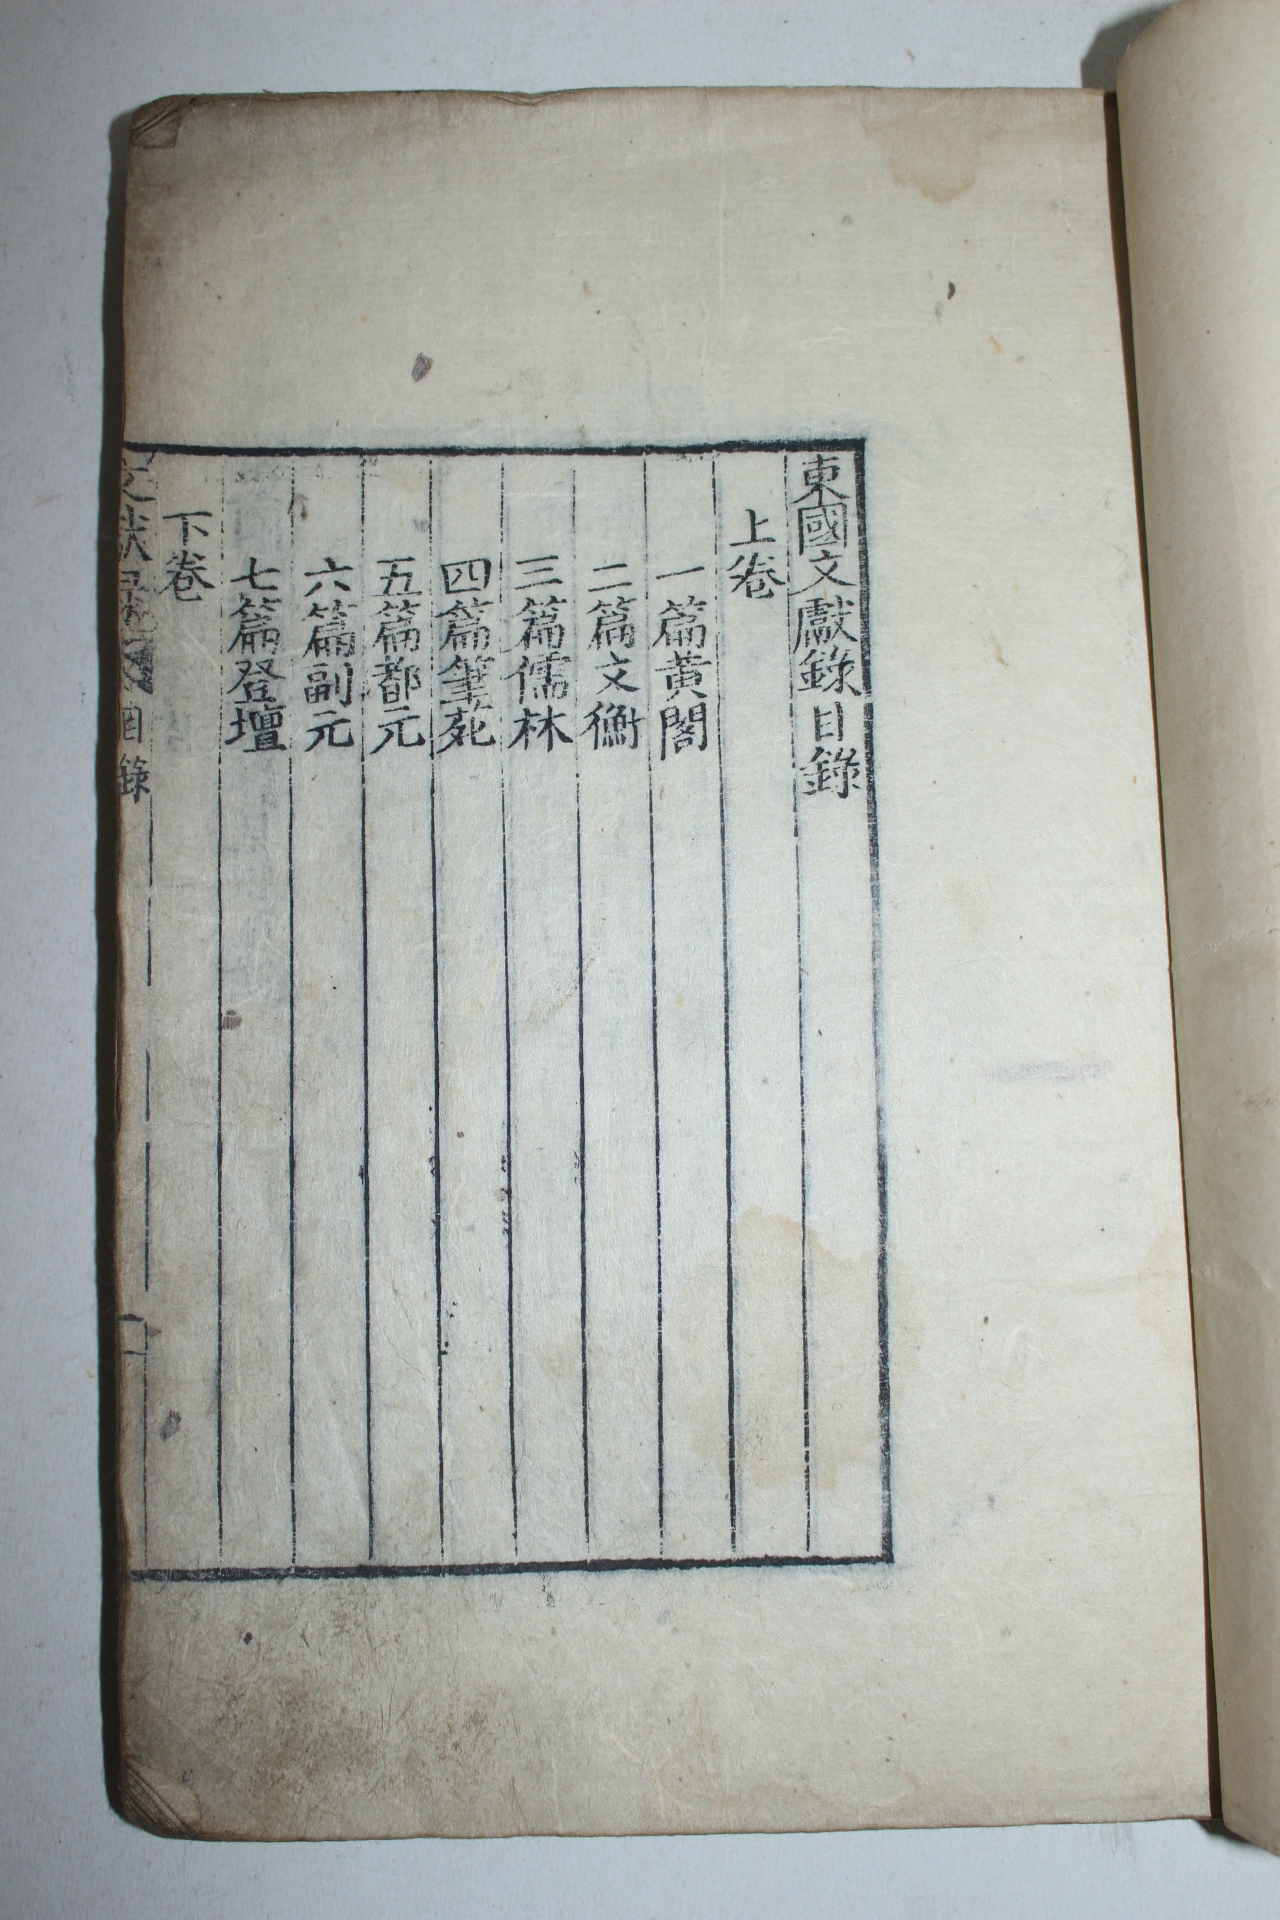 東國文獻錄目錄
上卷
一篇黃閣
二篇文衡
三篇儒林
四篇筆苑
五篇都元
六篇副元
七篇登壇
下卷
文献录
目錄